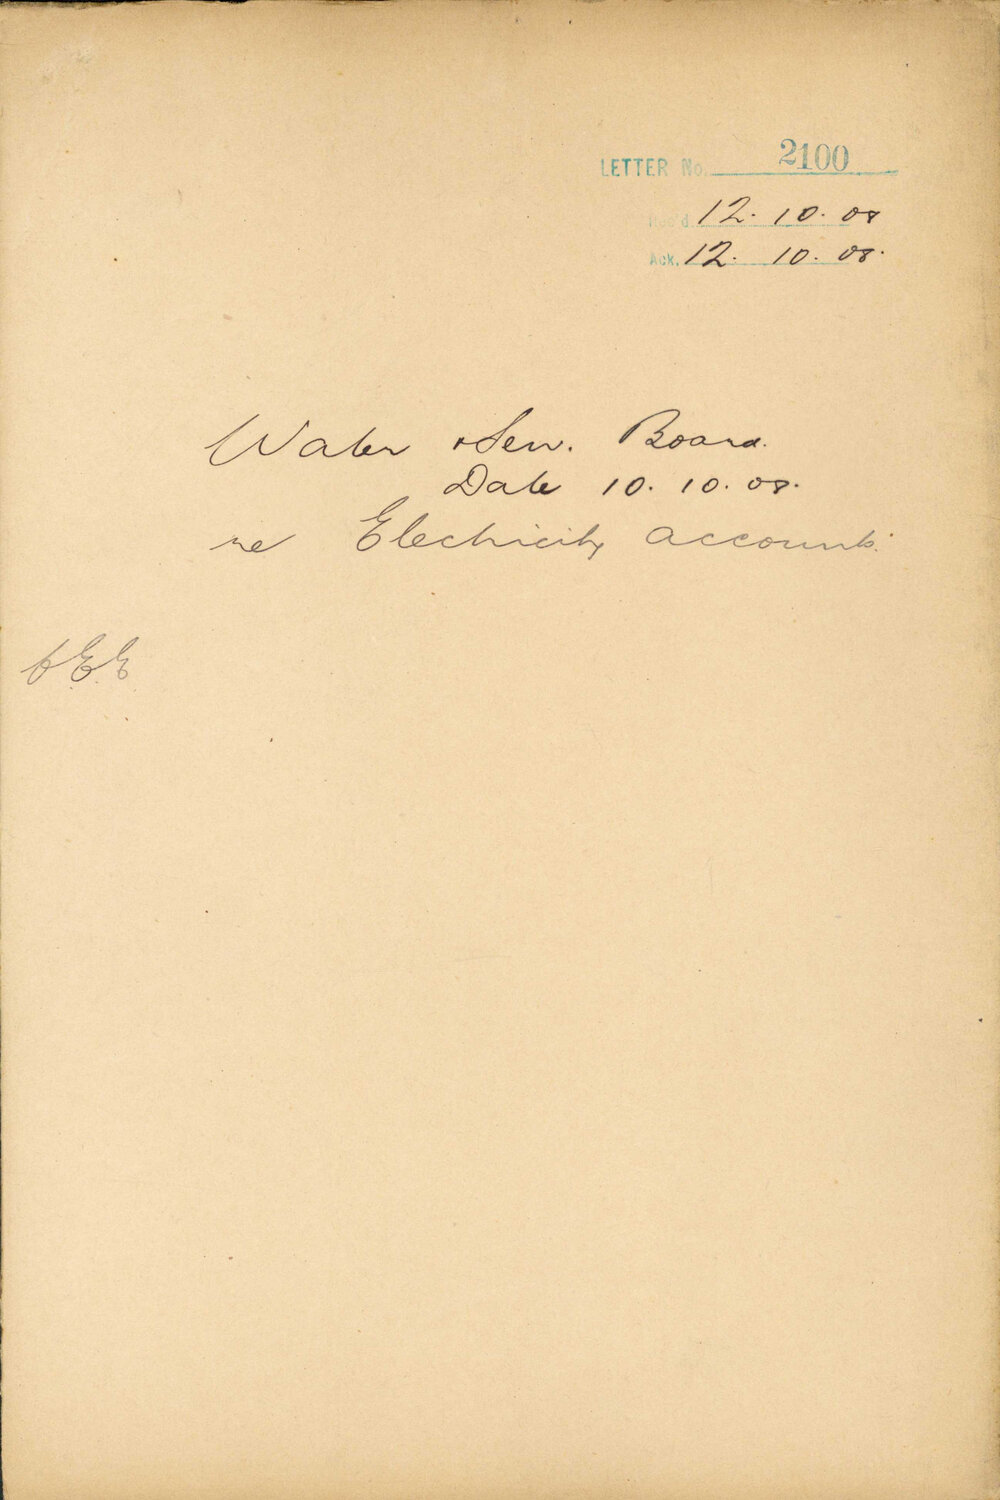 LETTER No. 2100
Rec'd. 12. 10. 08
Ack. 12. 10. 08.
Water & Sew. Board.
Date 10. 10. 08.
re Electricity accounts.